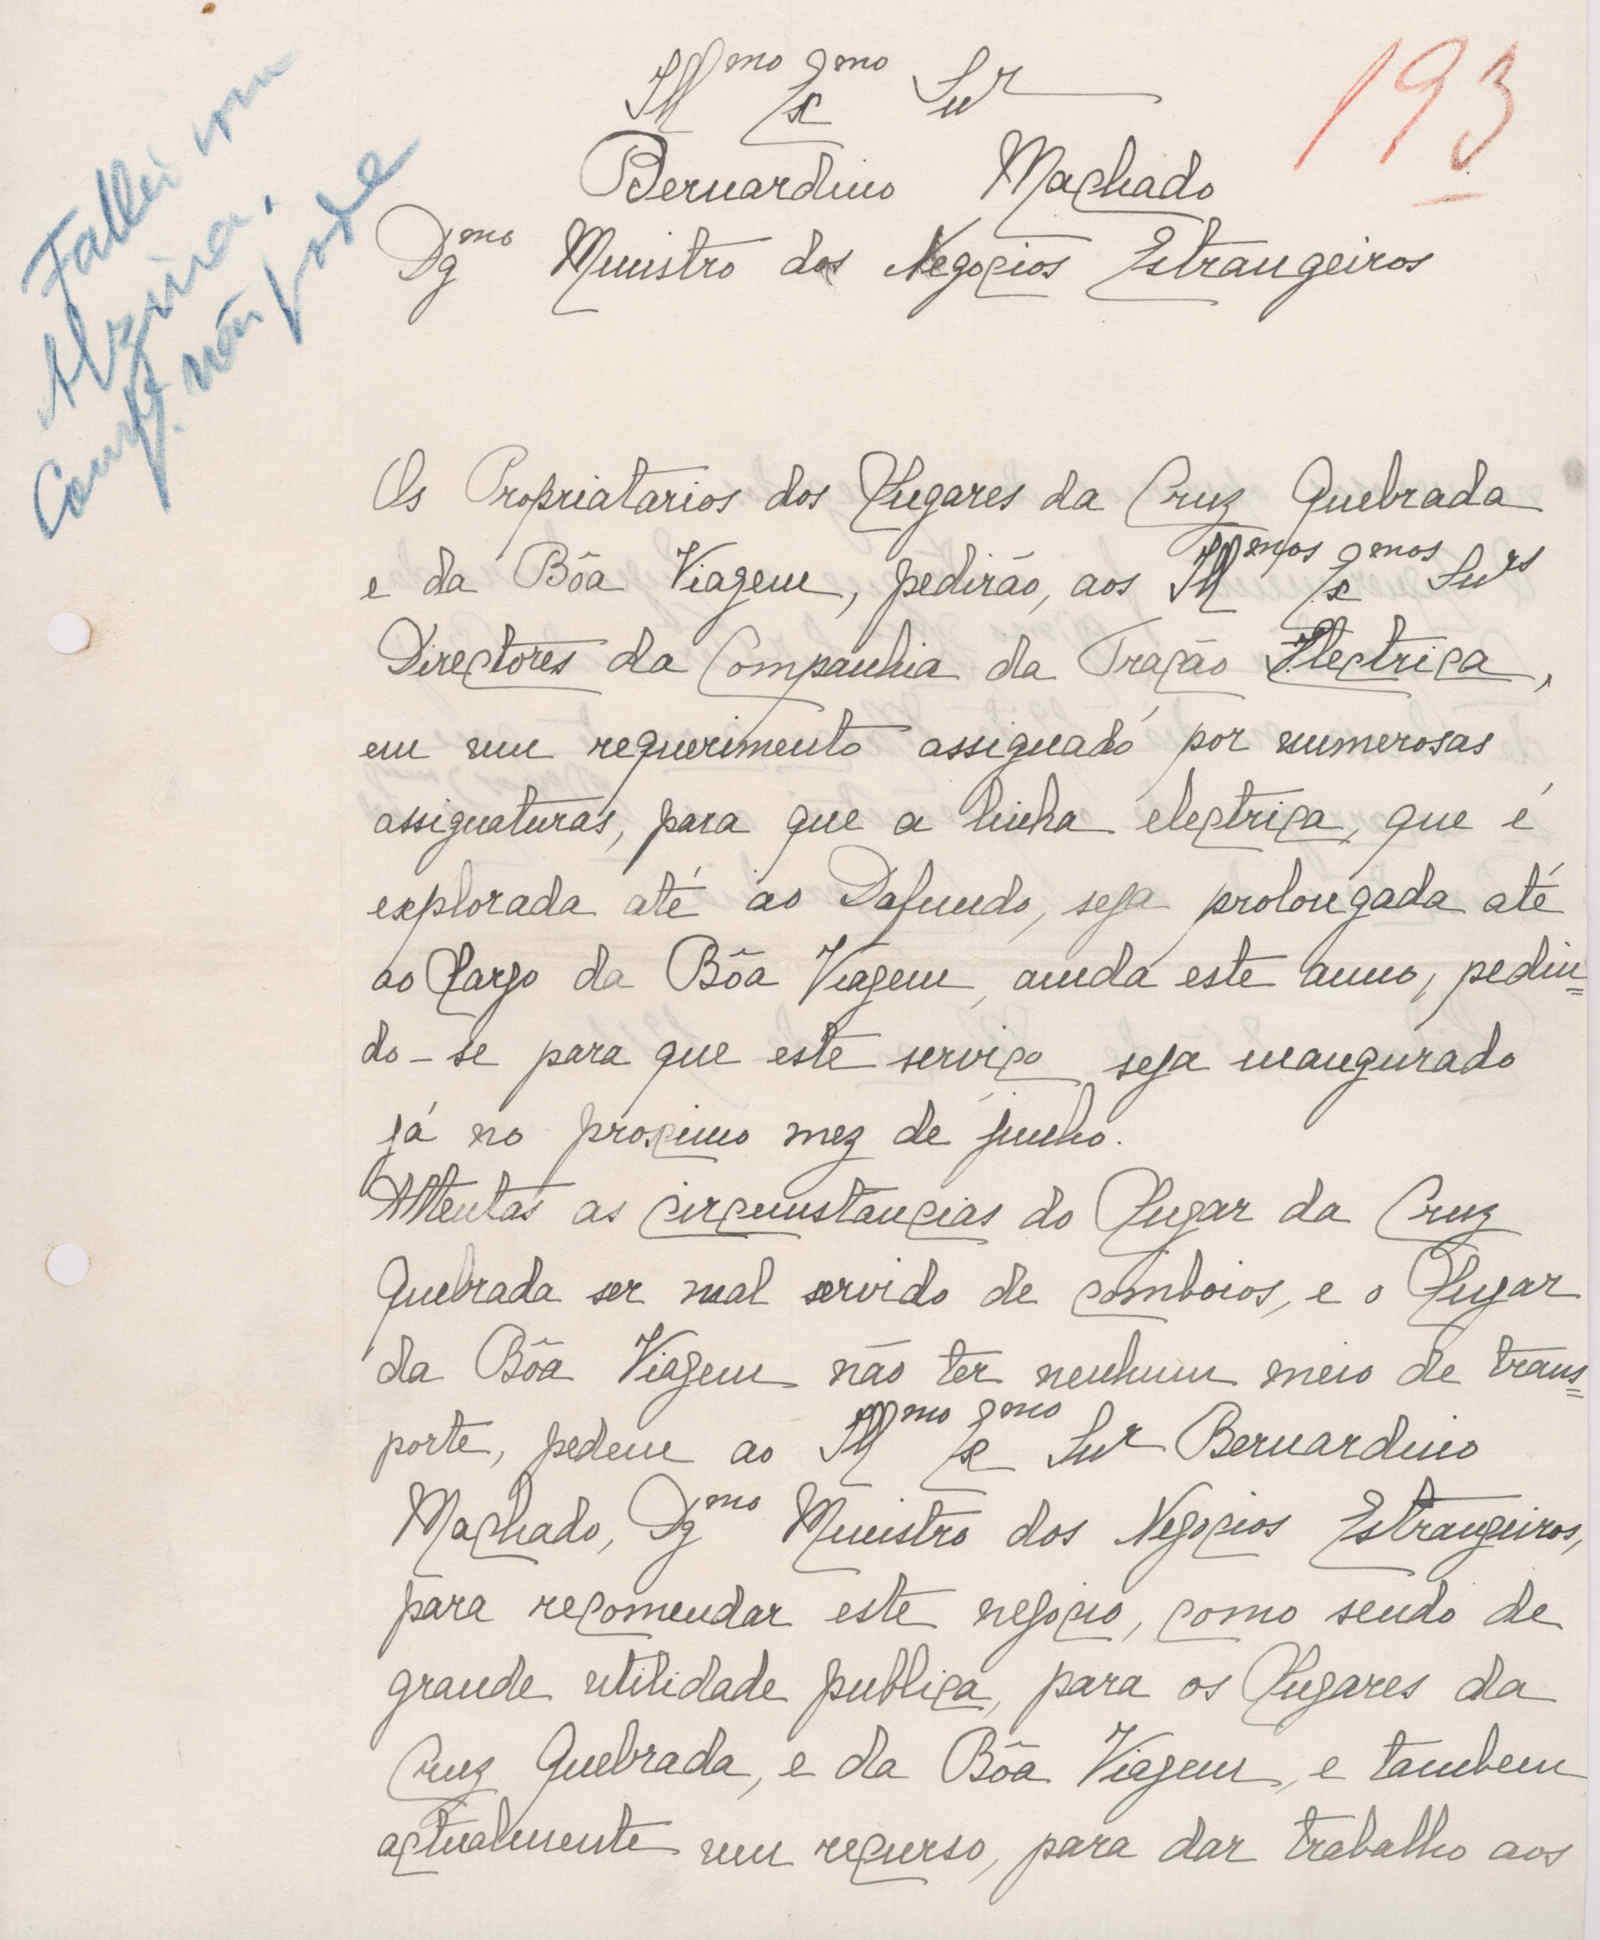 193
Fallei com
Alzira.
Comp. não pode
Illmo Exmo Snr
Bernardino Machado
Dgmo Ministro dos Negocios Estrangeiros
Os Propriatarios dos Lugares da Cruz Quebrada
e da Bôa Viagem, pedirão, aos Illmos Exmos Snrs
Directores da Companhia da Tração Electrica,
em um requerimento assignado por numerosas
assignaturas, para que a linha electrica, que é
explorada até ao Dafundo, seja prolongada até
ao Largo da Bôa Viagem, ainda este anno, pedin=
do-se para que este serviço seja inaugurado
já no proximo mez de junho.
Attentas as circumstancias do Lugar da Cruz
Quebrada ser mal servido de comboios, e o Lugar
da Bôa Viagem não ter nenhum meio de trans=
porte, pedem ao Illmo Exmo Snr Bernardino
Machado, Dgmo Ministro dos Negocios Estrangeiros,
para recomendar este negocio, como sendo de
grande utilidade publica, para os Lugares da
Cruz Quebrada, e da Bôa Viagem, e tambem
actualmente um recurso, para dar trabalho aos